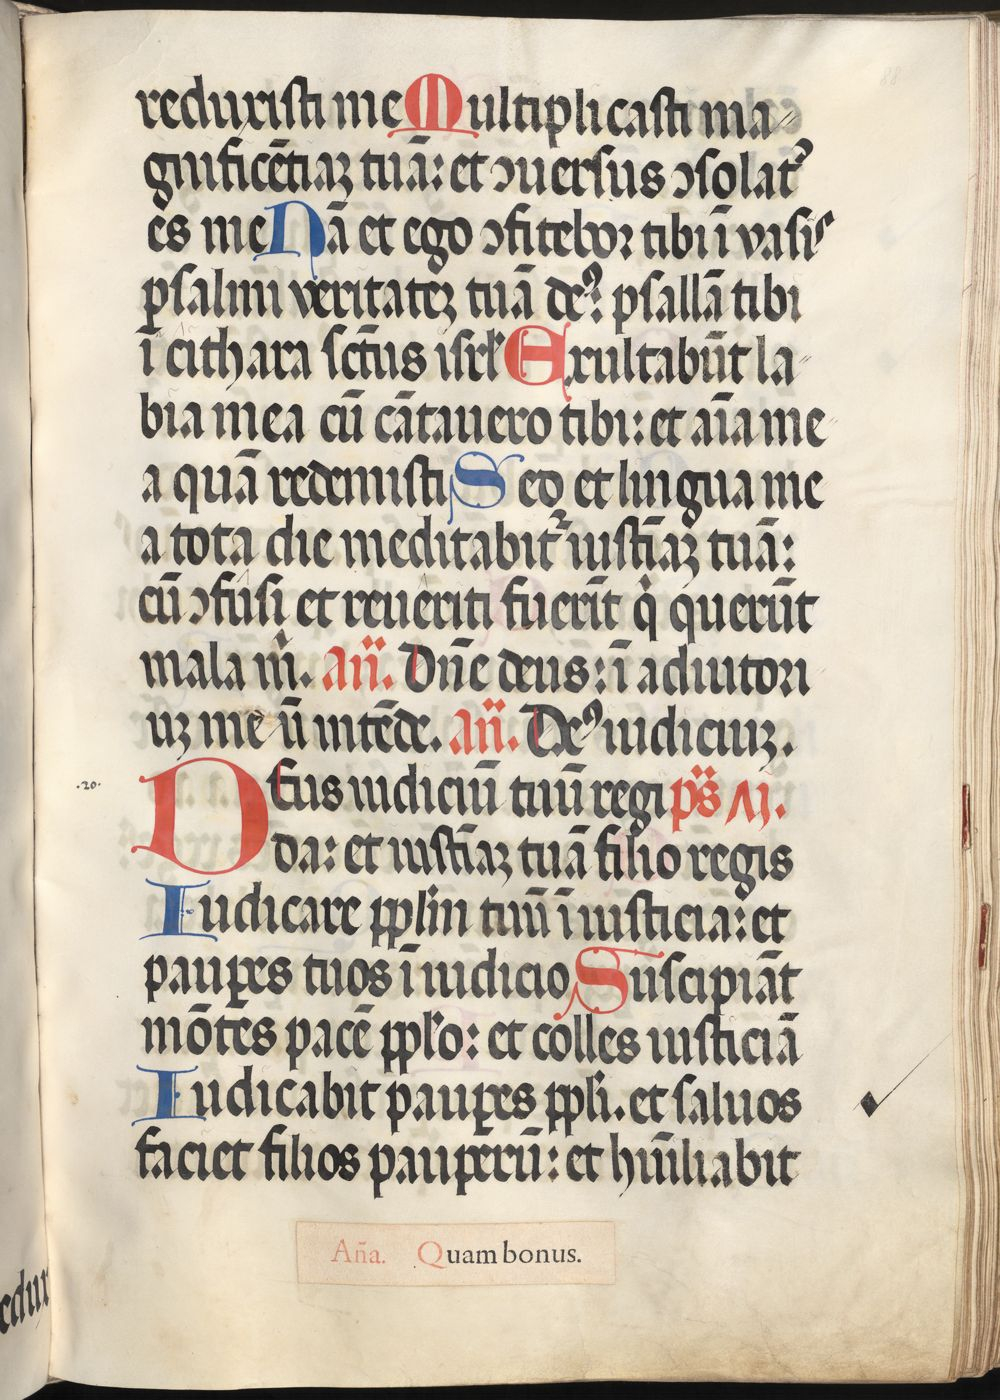 88
reduxisti me Multiplicasti ma⸗
gnificētiaꝫ tuā: et ↄuersus ↄsolatꝰ
es me Nā et ego ↄfitebor tibi ī vasis
psalmi veritateꝫ tuā deꝰ: psallā tibi
ī cithara sctūs isrl Exultabūt la⸗
bia mea cū cātauero tibi: et aīa me⸗
a quā redemisti Sed et lingua me
a tota die meditabit iustīaꝫ tuā:
cū ↄfusi et reueriti fuerīt q querūt
mala m. an̄. Dn̄e deus: ī adiutori
uꝫ meū intēde. an̄. Deꝰ iudiciuꝫ.
.20. Deus iudiciū tuū regi ps̄
da: et iustīaꝫ tuā filio regis
Iudicare pplm tuū ī iusticia: et
pauꝑes tuos ī iudicio Suscipiāt
mōtes pacē pplo: et colles iusticiā
Iudicabit pauꝑes ppli. et saluos
faciet filios pauꝑerū: et hūiliabit
Aña. Quam bonus.
edux